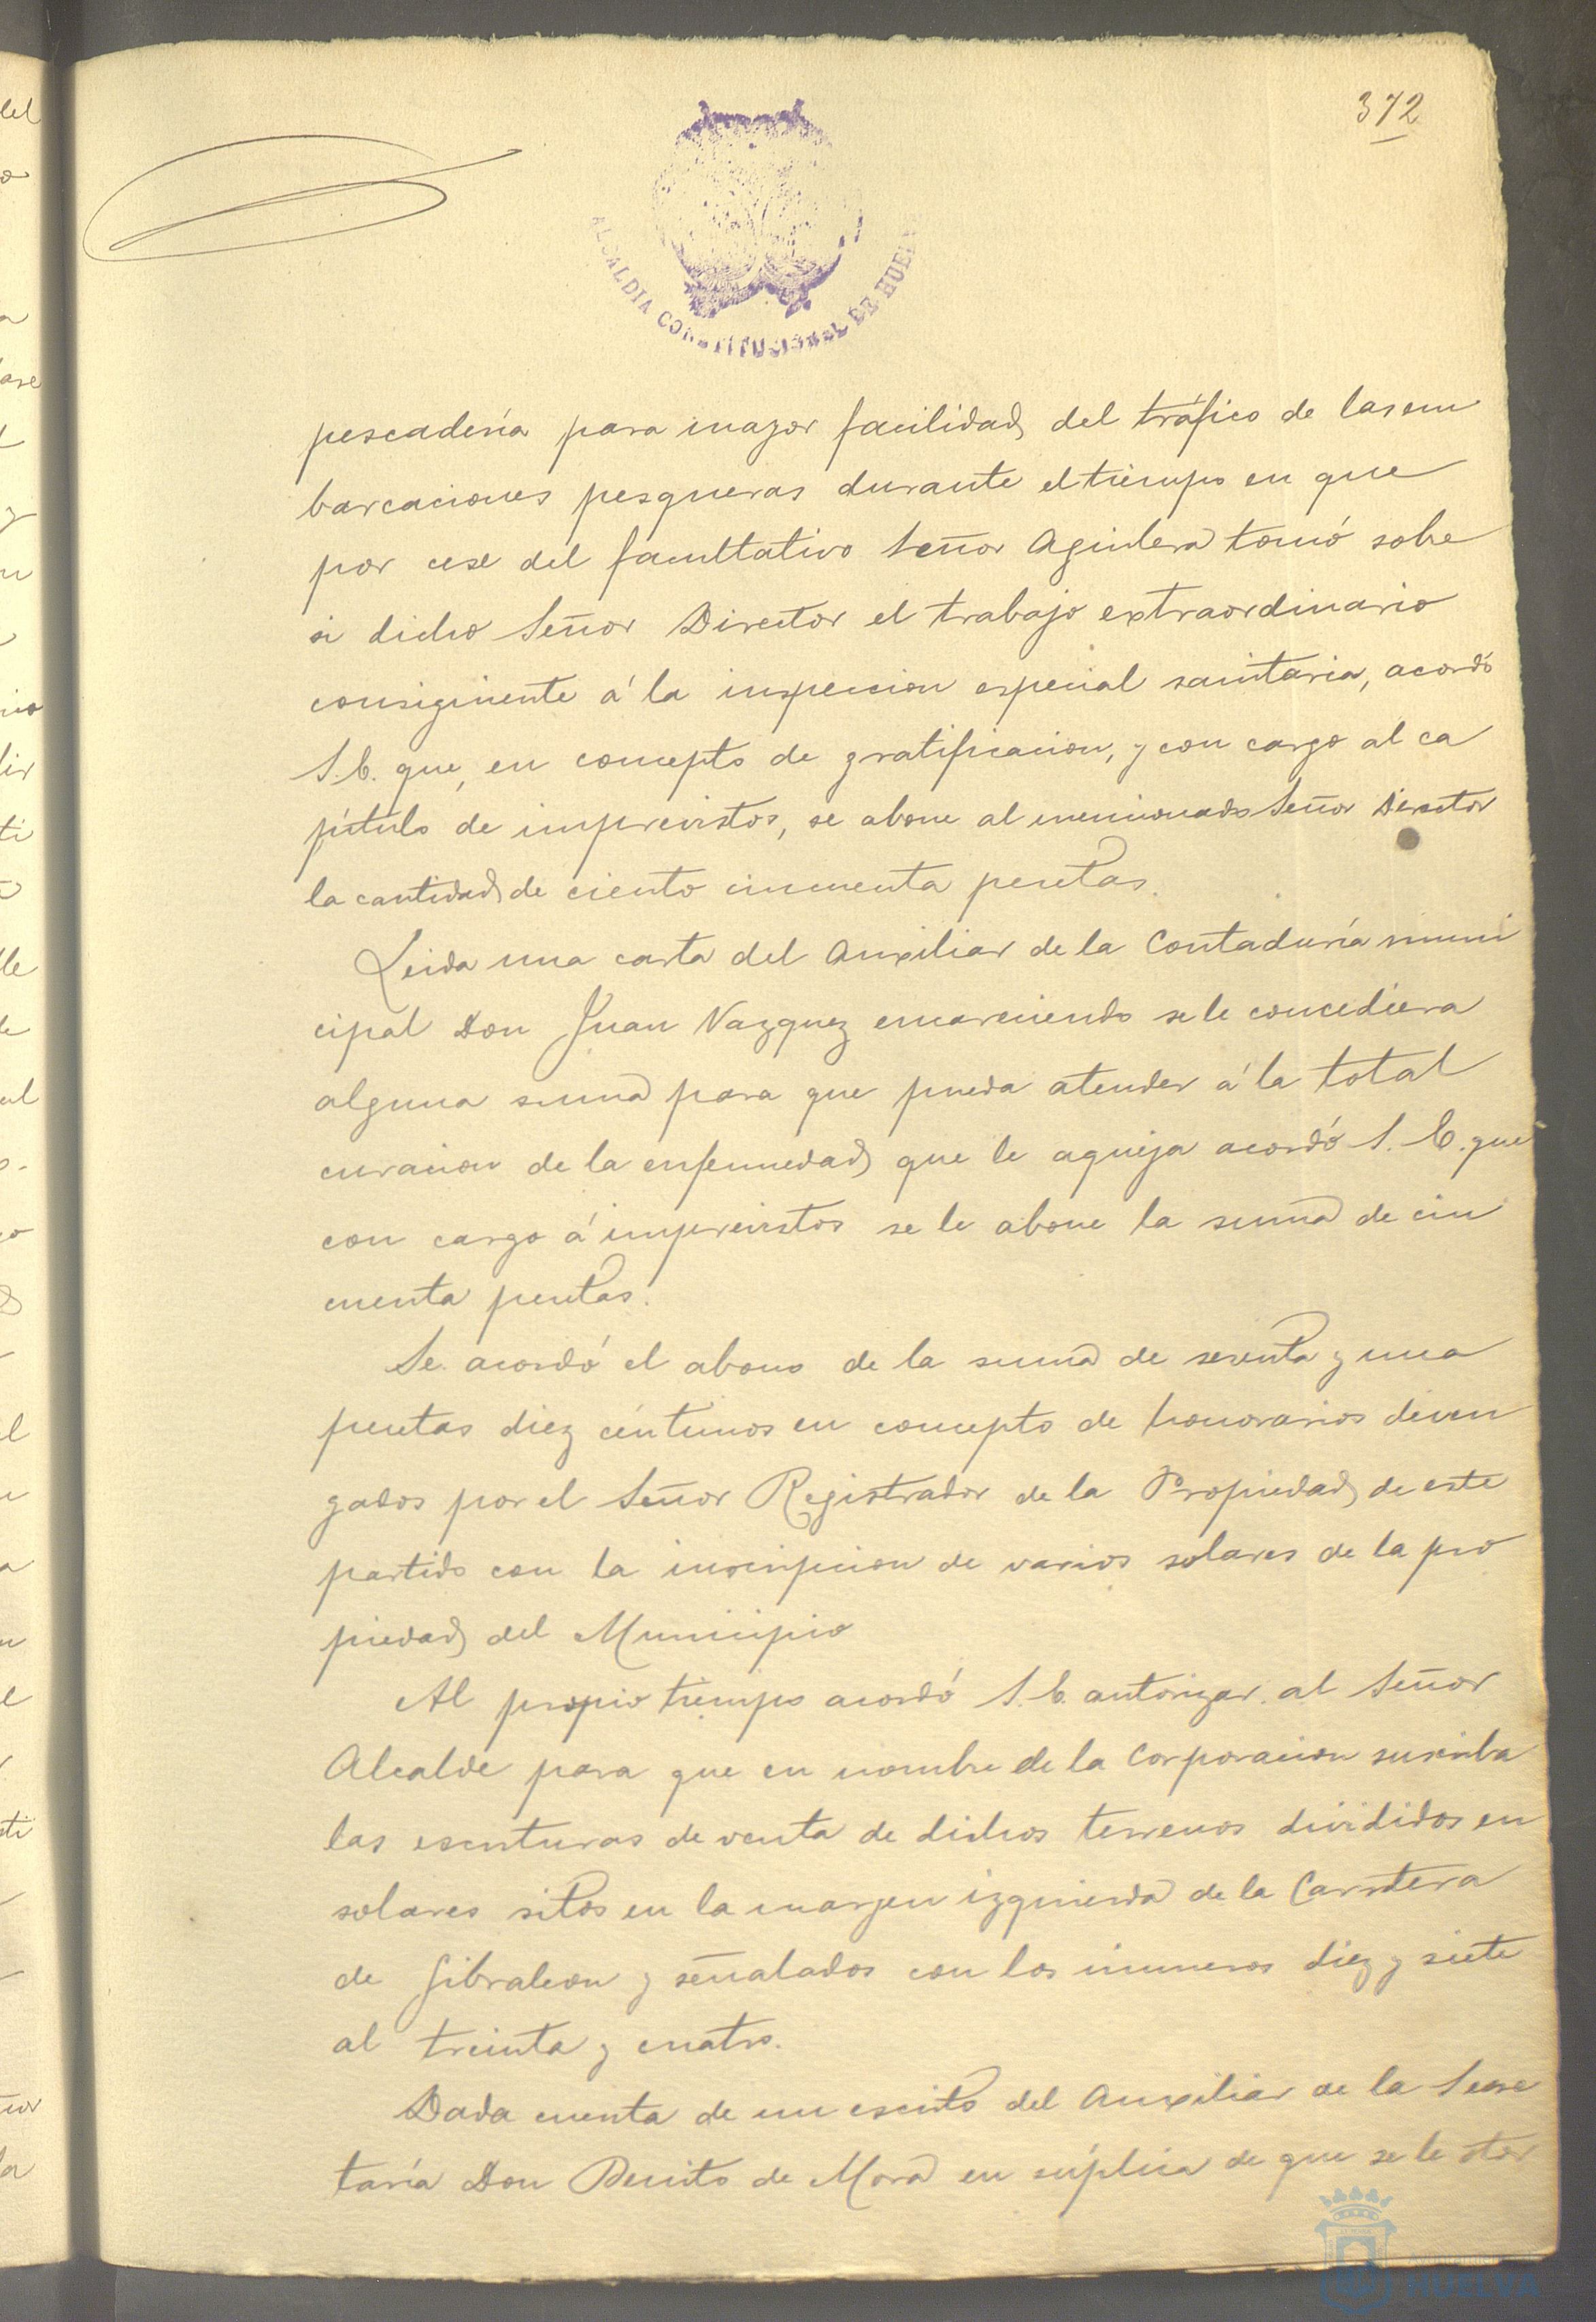 372
ALCALDIA CONSTITUCIONAL DE HUELVA
pescadería para mayor facilidad del tráfico de las em
barcaciones pesqueras durante el tiempo en que
por cese del facultativo Señor Aguilera tomó sobre
si dicho Señor Director el trabajo extraordinario
consiguiente á la inspeccion especial sanitaria, acordó
S.C. que, en concepto de gratificacion, y con cargo al ca
pítulo de imprevistos, se abone al mencionado Señor Director
la cantidad de ciento cincuenta pesetas.
Leida una carta del Auxiliar de la Contaduría muni
cipal Don Juan Vazquez encareciendo se le concediera
alguna suma para que pueda atender á la total
curacion de la enfermedad que le aqueja acordó S. C. que
con cargo á imprevistos se le abone la suma de cin
cuenta pesetas.
Se acordó el abono de la suma de sesenta y una
pesetas diez céntimos en concepto de honorarios deven
gados por el Señor Registrador de la Propiedad de este
partido con la inscripcion de varios solares de la pro
piedad del Municipio
Al propio tiempo acordó S.C. autorizar al Señor
Alcalde para que en nombre de la Corporacion suscriba
las escrituras de venta de dichos terrenos divididos en
solares sitos en la margen izquierda de la Carretera
de Gibraleon y señalados con los números diez y siete
al treinta y cuatro.
Dada cuenta de un escrito del Auxiliar de la Secre
taría Don Benito de Mora en súplica de que se le otor
HUELVA